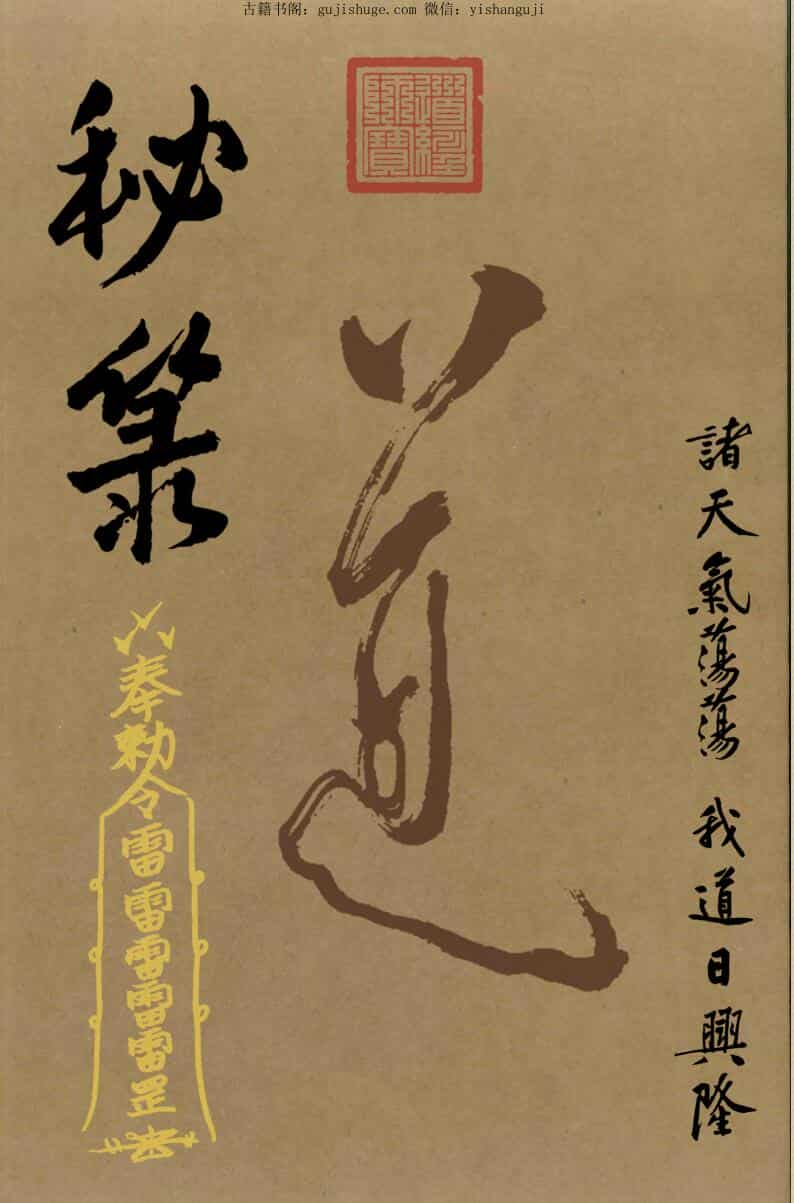 古籍书阁：gujishuge.com 微信：yishanguji
道經師寶
諸天氣蕩蕩 我道日興隆
道
秘箓
奉勅令雷雷雷雷雷罡